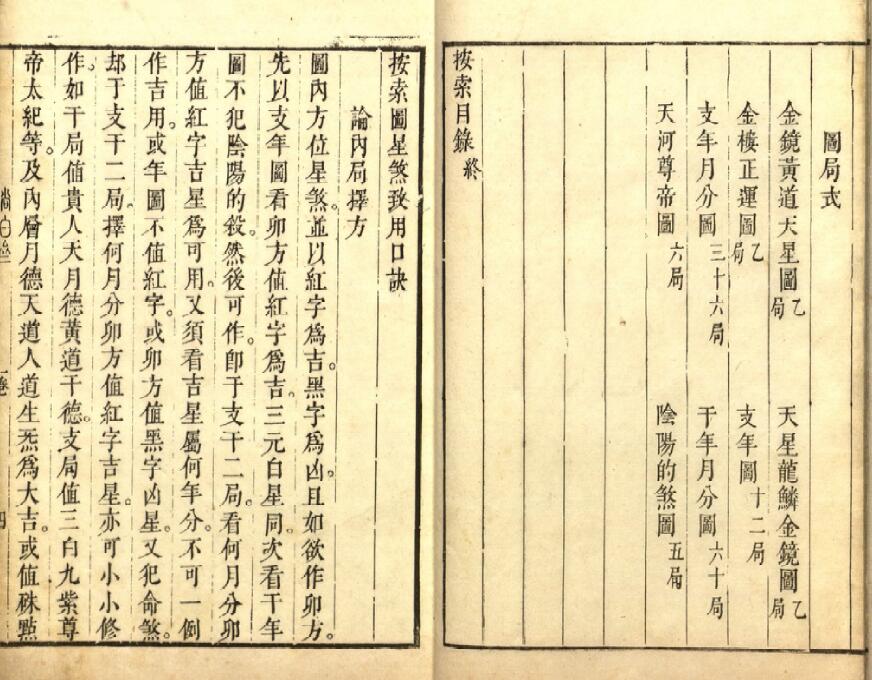 圖局式
金鏡黃道天星圖乙局　天星龍鱗金鏡圖乙局
金樓正運圖乙局　支年圖十二局
支年月分圖三十六局　干年月分圖六十局
天河尊帝圖六局　陰陽的煞圖五局
按索目錄終
按索圖星煞致用口訣
論內局擇方
圖內方位星煞。並以紅字爲吉。黑字爲凶。且如欲作卯方。
先以支年圖看卯方值紅字爲吉。三元白星同。次看干年
圖不犯陰陽的殺。然後可作。卽于支干二局。看何月分卯
方值紅字吉星爲可用。又須看吉星屬何年分。不可一例
作吉用。或年圖不值紅字。或卯方值黑字凶星。又犯命煞。
却于支干二局。擇何月分卯方值紅字吉星。亦可小小修
作。如干局值貴人天月德黃道干德。支局值三白九紫尊
帝太紀等。及內層月德天道人道生炁爲大吉。或值硃點
一卷
四